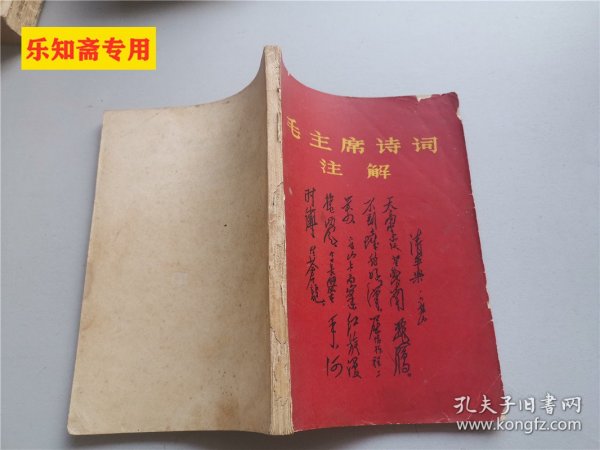 乐知斋专用
毛主席诗词
注解
清平乐 六盘山
天高云淡 望断南飞雁
不到长城非好汉 屈指行程二
万 六盘山上高峰 红旗漫
卷西风 今日长缨在手 何
时缚住苍龙
孔夫子旧书网
www.kongfz.com